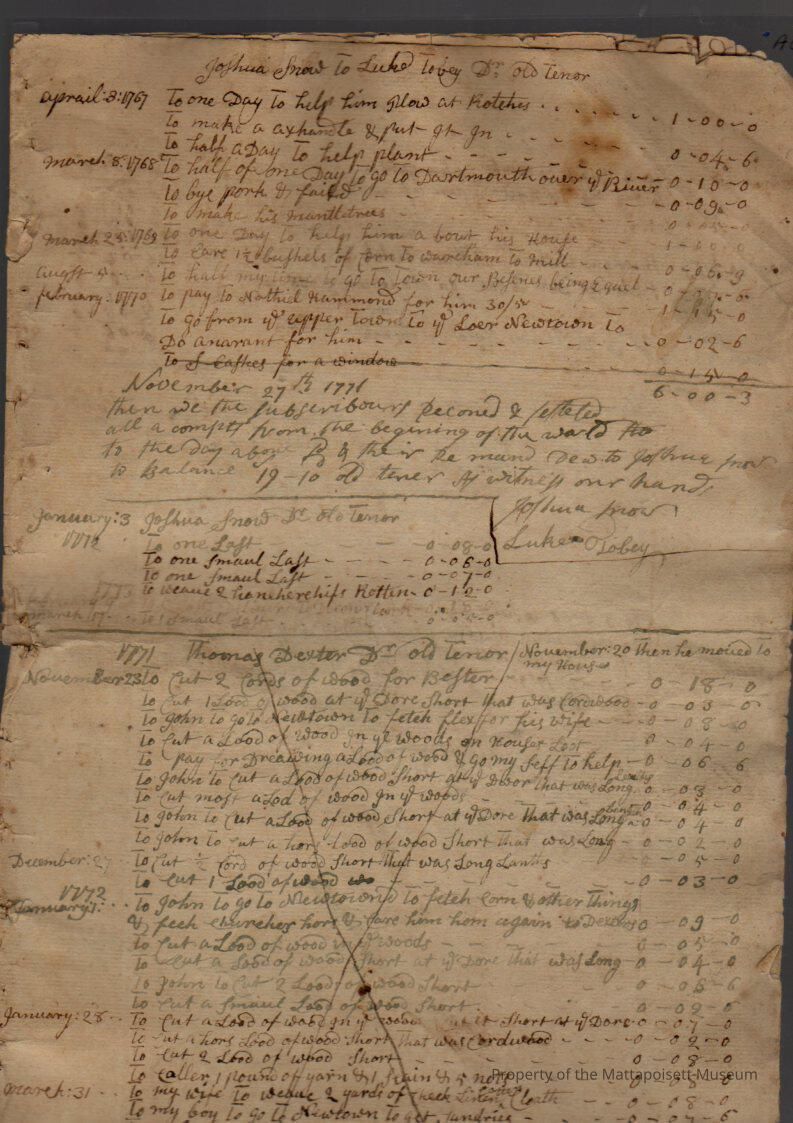 Joshua Snow To Luke Tobey Dr old Tenor
aprail: 8: 1767 To one Day To help him plow at Rotches 1-00-0
To make a axhandle & put It In 0-04-6
To half a Day To help plant
march 8: 1768 To half of one Day To go to Dartmouth over ye River 0-10-0
To bye pork & 0-09-0
To make his
march 25: 1769 To one Day to help him a bout his House 1-00-0
To Care 1½ bushels of Corn to wareham to mill 0-06-9
augst 5 To half my time to go to Town our Besenes being Equel
february: 1770 To pay to Nathiel Hammond for him 30/5 1-15-0
To go from ye upper Town To ye Loer Newtown To
Do anarant for him 0-02-6
To 5 Cashes for a window 0-15-0
6-00-3
November 27th 1771
then we the subscribours Reconed & setteled
all a compts from the begining of the world
to the Day above sd & their Re maind Dew to Joshua snow
to Balance 19-10 old tener As witness our hand
Joshua snow
Luke Tobey
January: 3 Joshua Snow Dr old Tenor
1772
To one Last 0-08-0
To one smaul Last 0-06-0
To one smaul Last 0-07-0
To weave 2 hancherchifs Kotten 0-12-0
To 1 smaul Last
1771 Thomas Dexter Dr old Tenor / November: 20 then he moved to
my House
November 23 To Cut 2 Cords of wood for Bester 0-18-0
To Cut 1 Lood of wood at ye Dore Short that was Cordwood 0-03-0
To John to go to Newtown To fetch flex for his wife 0-08-0
To Cut a Lood of wood In ye woods on House Loot 0-04-0
To pay for Dreawing a Lood of wood & go my self To help 0-06-6
To John To Cut a Lood of wood Short at ye Door that was Long 0-03-0
To Cut most a Lod of wood In ye woods 0-04-0
To John to Cut a Lood of wood Short at ye Dore That was Long 0-04-0
To John to Cut a hors lood of wood Short that was Long 0-02-0
December: 27 To Cut ½ Cord of wood Short that was Long Lanths 0-05-0
To Cut 1 Lood of wood 0-03-0
1772
January 1: To John to go to Newtownd To fetch Corn & other Things
& fech Churches hors & Care him hom again to Dexters 0-09-0
To Cut a Lood of wood in ye woods 0-05-0
To Cut a Lood of wood Short at ye Dore that was Long 0-04-0
To John to Cut 2 Loods of wood Short 0-06-6
To Cut a Smaul Lood of wood Short 0-02-6
January: 28 To Cut a Lood of wood In ye woods Cut it Short at ye Dore 0-07-0
To Cut a hors Lood of wood Short that was Cordwood 0-02-0
To Cut 2 Lood of wood Short 0-08-0
To Caller 1 pound of yarn & 1 Skain & 5 nots
march: 31 To my wife To weave 2 yards of Check Linen Cloath 0-08-0
To my boy To go to Newtown To get sundries 0-07-6
Property of the Mattapoisett Museum